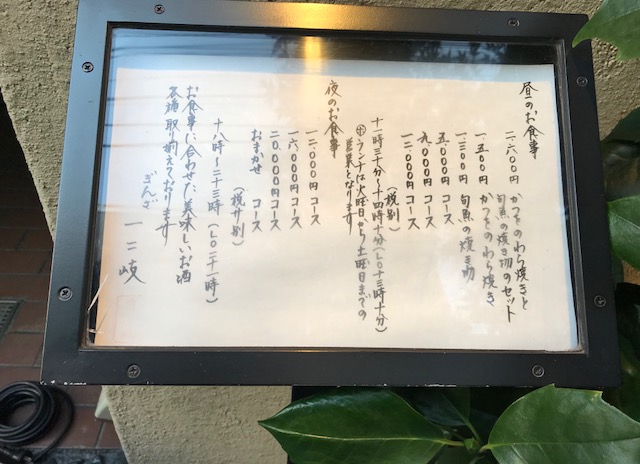 昼のお食事
二、六〇〇円 かつをのわら焼きと
旬魚の焼き物のセット
一、五〇〇円 かつをのわら焼き
一、三〇〇円 旬魚の焼き物
五、〇〇〇円 コース
九、〇〇〇円 コース
一二、〇〇〇円 コース
(税別)
十一時三十分〜十四時十分(LO十三時十分)
㊟ランチは火曜日から土曜日までの
営業となります
夜のお食事
一二、〇〇〇円 コース
一六、〇〇〇円 コース
二〇、〇〇〇円 コース
おまかせ コース
(税サ別)
十八時〜二十三時(LO二十一時)
お食事に合わせた美味しいお酒
各種取り揃えております
ぎんざ
一二岐